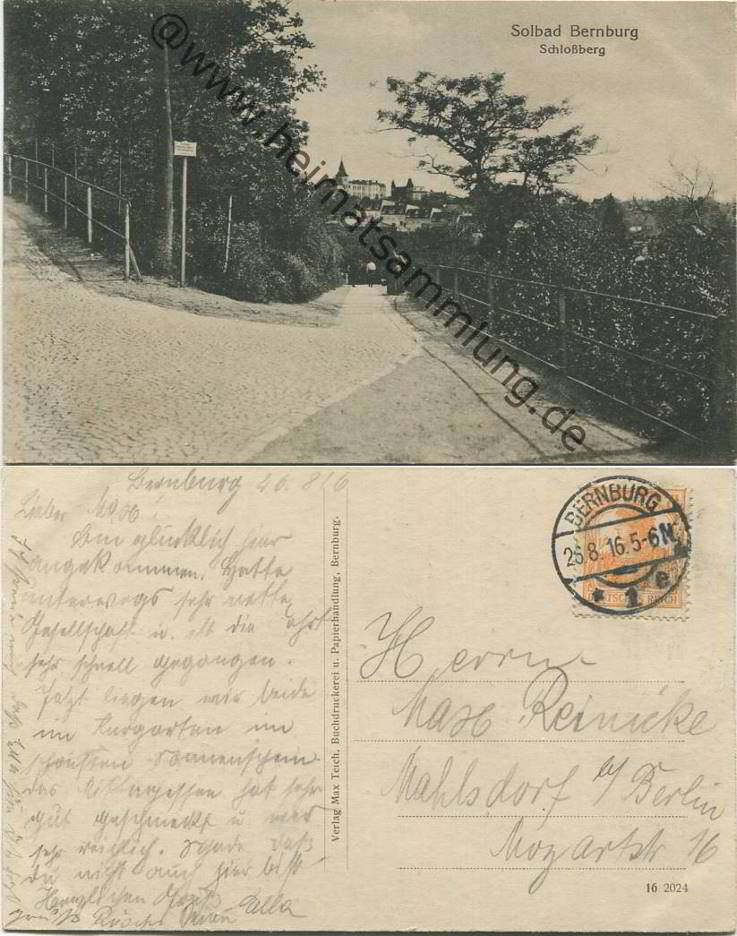 Solbad Bernburg
Schloßberg
@www.heimatsammlung.de
Bernburg 26. 8 16
Lieber Max!
Bin glücklich hier
angekommen. Hatte
unterwegs sehr nette
Gesellschaft u. ist die Fahrt
sehr schnell gegangen.
Jetzt liegen wir beide
im Kurgarten im
schönsten Sonnenschein.
Das Mittagessen hat sehr
gut geschmeckt u. war
sehr reichlich. Schade daß
du nicht auch hier bist.
Herzlichen Gruß
Ella
Verlag Max Teich, Buchdruckerei u. Papierhandlung, Bernburg.
BERNBURG
26.8.16.5-6N.
* 1 e
DEUTSCHES REICH
Herrn
Max Reinicke
Mahlsdorf b/ Berlin
Mozartstr 16
16 2024